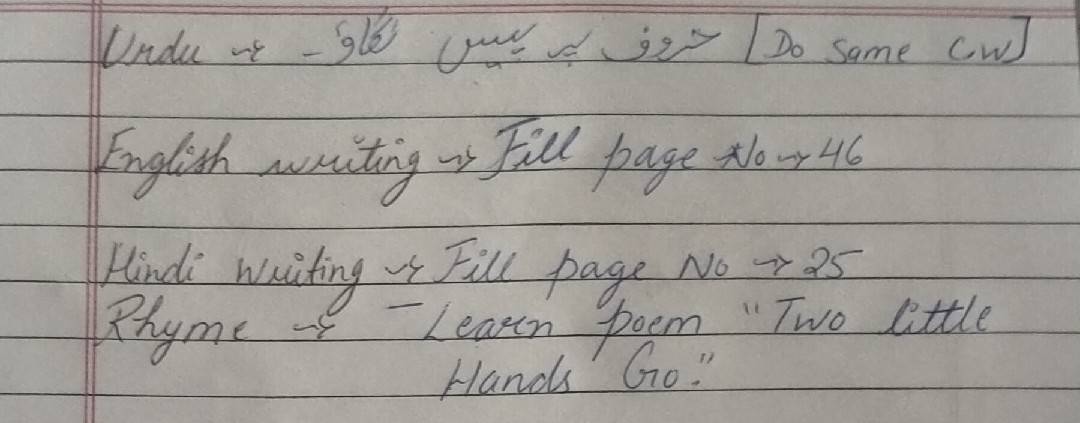 Urdu → حروف پہ پیش لگاؤ ۔ [Do Same C.W]
English writing → Fill page No → 46
Hindi Writing → Fill page No → 25
Rhyme → - Learn poem "Two little
Hands Go."